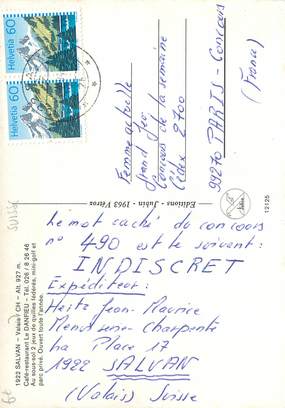 Helvetia 60
Helvetia 60
Femme actuelle
Grand Jeu
Concours de la semaine
Cédex 2700
99270 PARIS-Concours
(France)
Editions - Jubin - 1963 Vétroz
12125
SUISSE
1922 SALVAN - Valais / CH - Alt. 927 m.
Café-restaurant Le DANFIEU - Tél. 026 / 8 26 46
Au sous-sol 2 jeux de quilles fédérés, mini-golf et
parc privé. Ouvert toute l'année.
Le mot caché du concours
n° 490 est le suivant:
INDISCRET
Expéditeur:
Heitz Jean-Maurice
Menuiserie-Charpente
La Place 17
1922 SALVAN
(Valais) Suisse